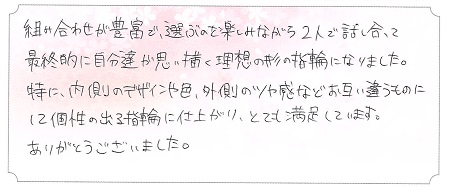 組み合わせが豊富で、選ぶので楽しみながら2人で話し合って
最終的に自分達が思い描く理想の形の指輪になりました。
特に、内側のデザインや色、外側のツヤ感などお互い違うものに
して個性の出る指輪に仕上がり、とても満足しています。
ありがとうございました。